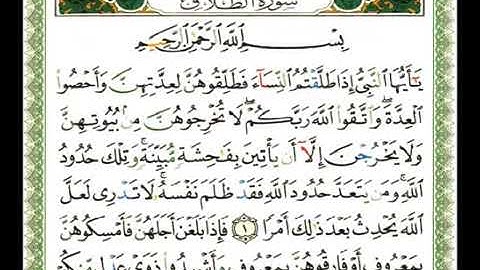 سُورَةُ الطَّلَاقِ
بِسْمِ اللَّهِ الرَّحْمَٰنِ الرَّحِيمِ
يَٰٓأَيُّهَا ٱلنَّبِىُّ إِذَا طَلَّقْتُمُ ٱلنِّسَآءَ فَطَلِّقُوهُنَّ لِعِدَّتِهِنَّ وَأَحْصُوا۟
ٱلْعِدَّةَ ۖ وَٱتَّقُوا۟ ٱللَّهَ رَبَّكُمْ ۖ لَا تُخْرِجُوهُنَّ مِنۢ بُيُوتِهِنَّ
وَلَا يَخْرُجْنَ إِلَّآ أَن يَأْتِينَ بِفَٰحِشَةٍ مُّبَيِّنَةٍ ۚ وَتِلْكَ حُدُودُ
ٱللَّهِ ۚ وَمَن يَتَعَدَّ حُدُودَ ٱللَّهِ فَقَدْ ظَلَمَ نَفْسَهُۥ ۚ لَا تَدْرِى لَعَلَّ
ٱللَّهَ يُحْدِثُ بَعْدَ ذَٰلِكَ أَمْرًا ١ فَإِذَا بَلَغْنَ أَجَلَهُنَّ فَأَمْسِكُوهُنَّ
بِمَعْرُوفٍ أَوْ فَارِقُوهُنَّ بِمَعْرُوفٍ وَأَشْهِدُوا۟ ذَوَىْ عَدْلٍ مِّنكُمْ